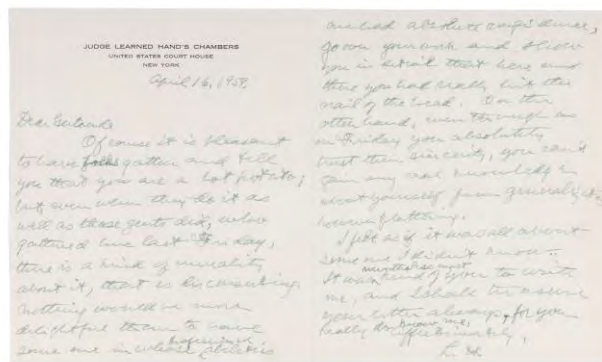 JUDGE LEARNED HAND'S CHAMBERS
UNITED STATES COURT HOUSE
NEW YORK
April 16, 1959
Dear
Of course it is pleasant
to have folks gather and tell
you that you are a hot potato;
but even when they do it as
well as those gents did, who
gathered here last Friday,
there is a kind of unreality
about it, that is disconcerting.
Nothing would be more
delightful than to have
some one in whose professional abilities
one had absolute confidence,
go over your work and show
you in detail that here and
there you had really hit the
nail on the head. On the
other hand, even though as
on Friday you absolutely
trust their sincerity, you can't
gain any real knowledge
about yourself from generalities
however flattering.
I felt as if it was all about
someone I didn't know.
It was kind of you to write
me, and I shall treasure
your letter always, for you
really do know me.
Affectionately,